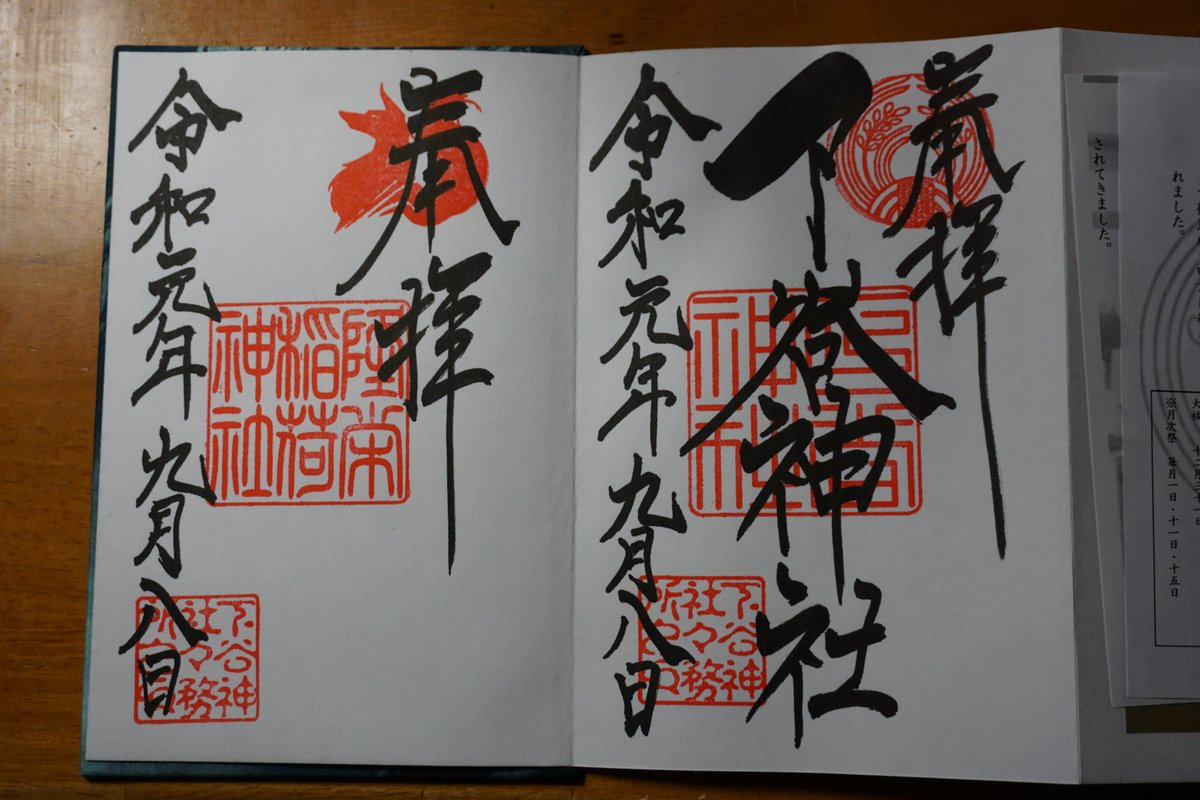 奉拝
下谷神社
令和元年九月八日
下谷神
社々務
所之印
奉拝
隆栄
稲荷
神社
令和元年九月八日
下谷神
社々務
所之印
されてきました。
れました。
※月次祭 毎月一日・十一日・十五日